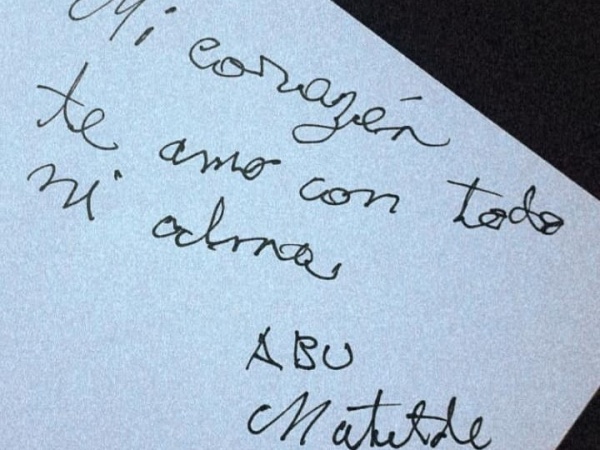 Mi corazón
te amo con todo
mi alma
ABU
Matilde